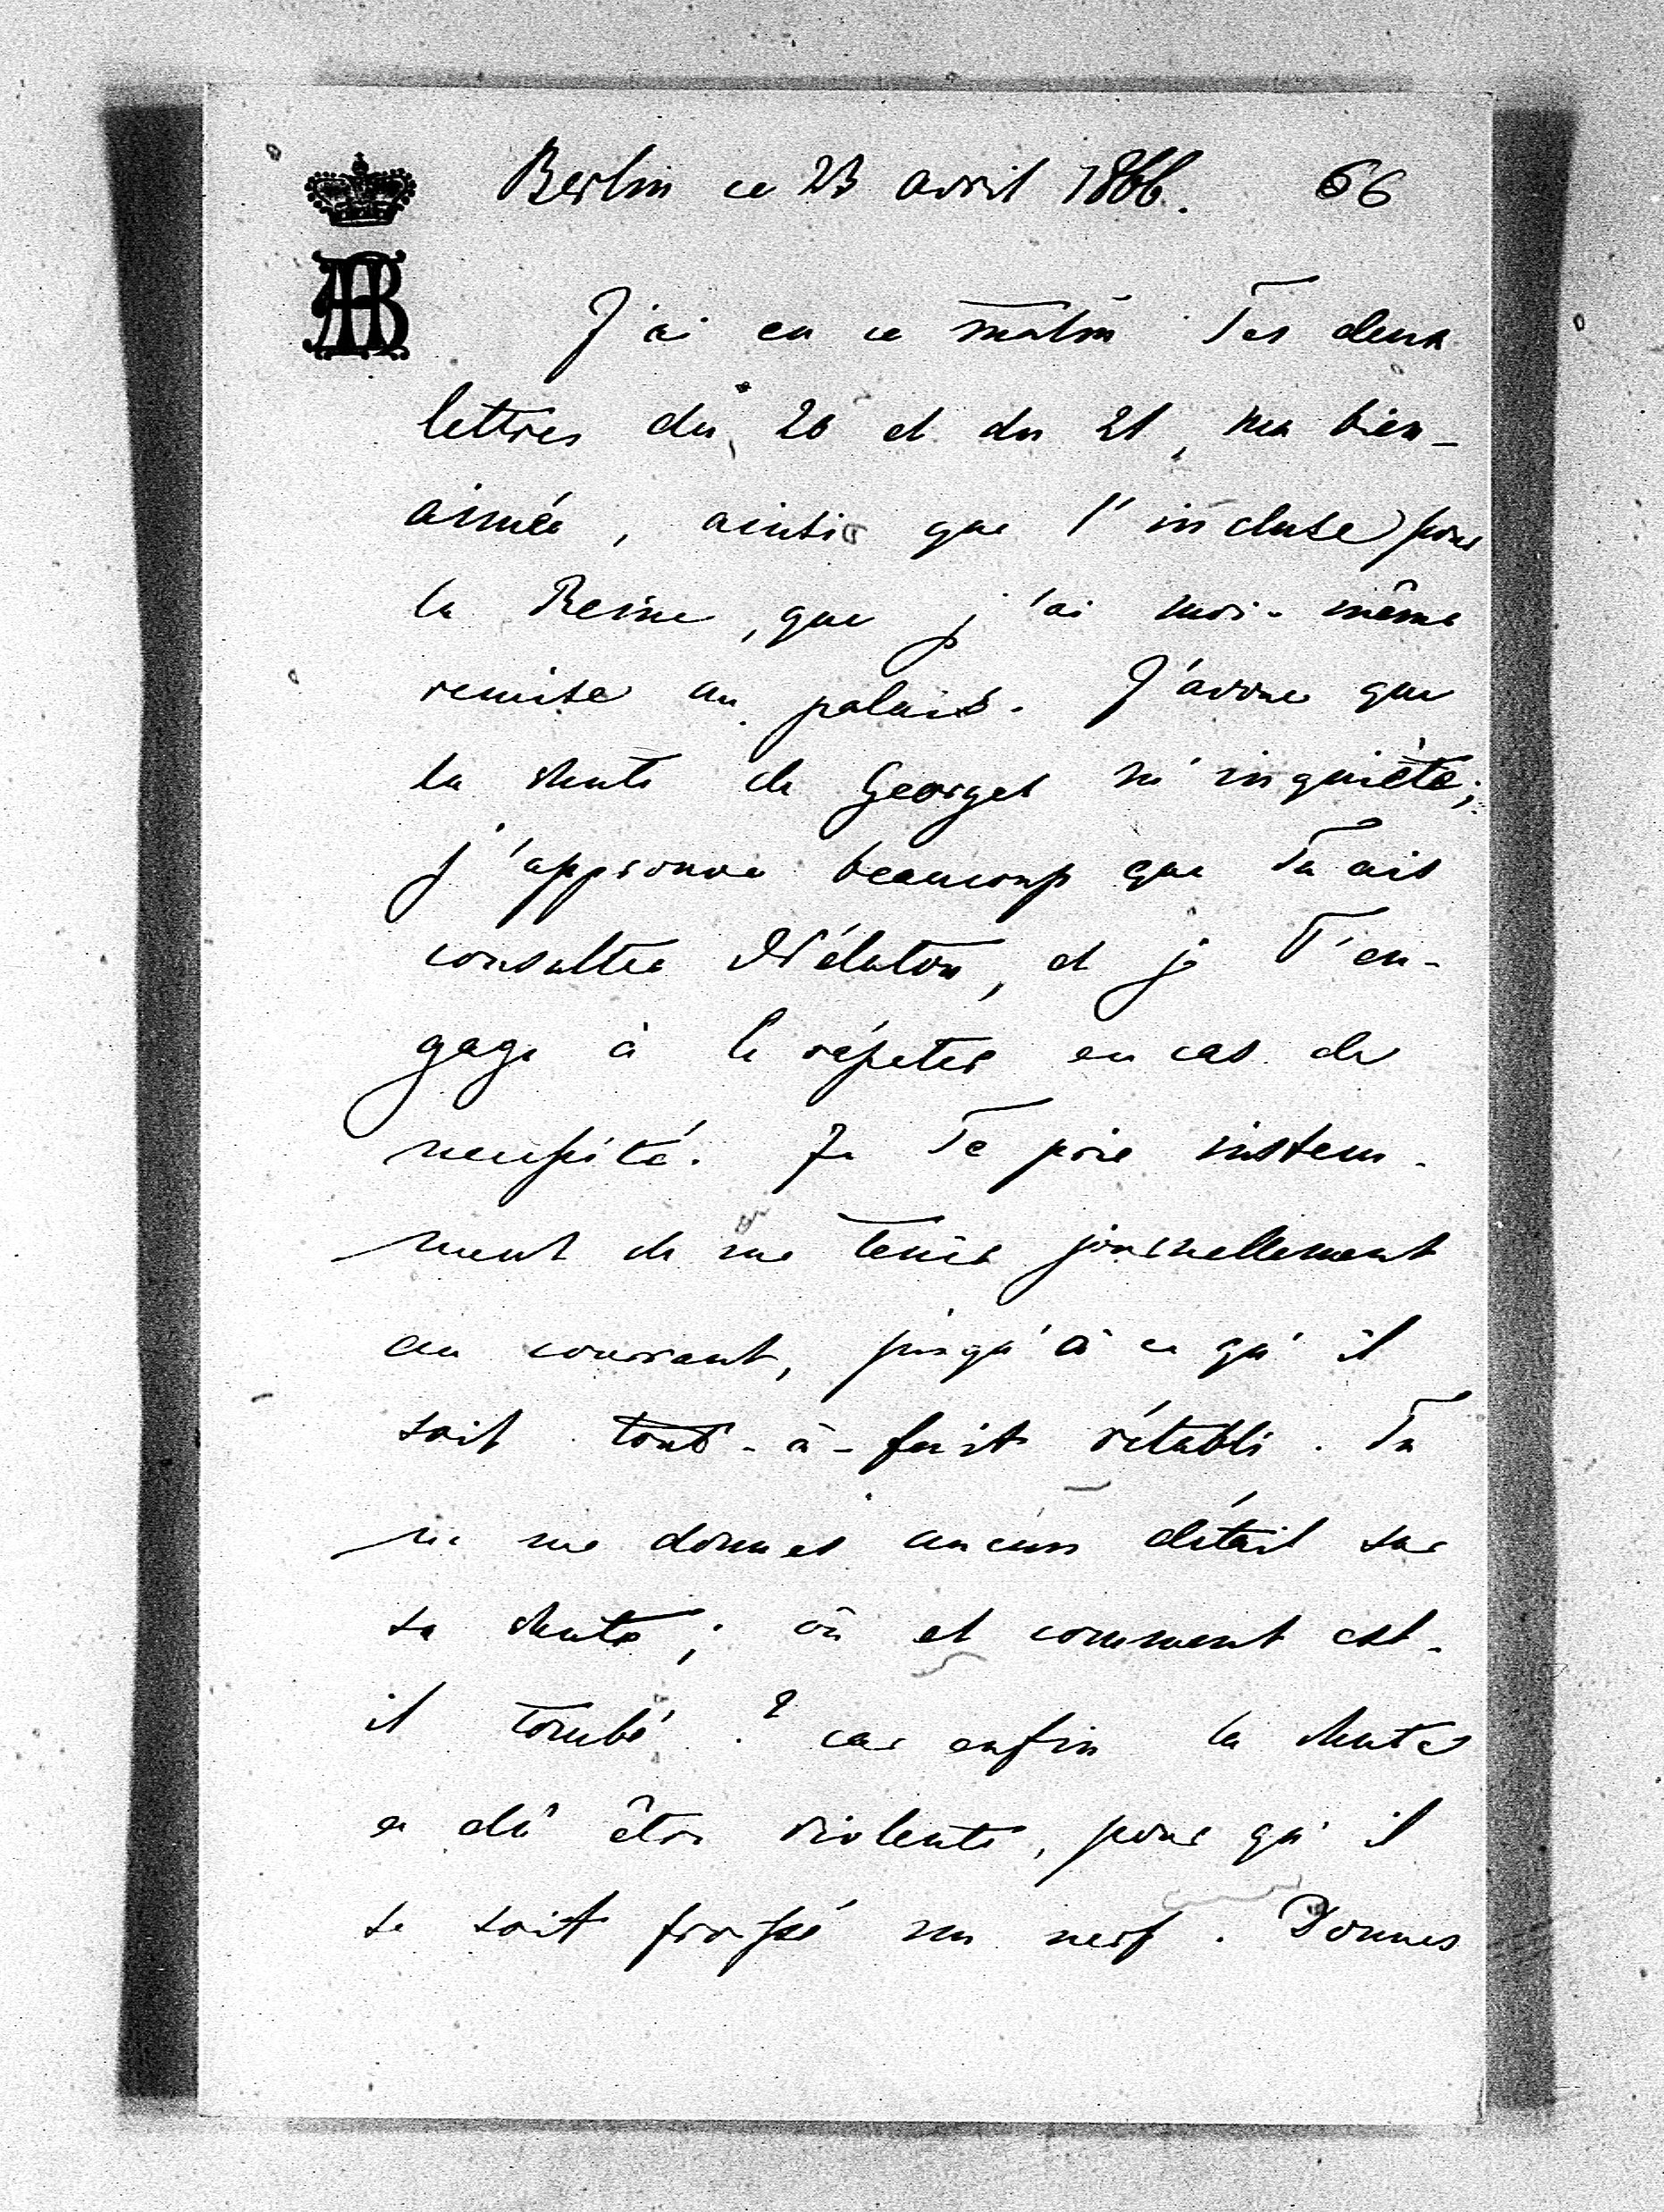 Berlin ce 23 avril 1866. 66
J'ai eu ce matin Tes deux
lettres du 20 et du 21, ma bien-
aimée, ainsi que l'incluse pour
la Reine, que j'ai moi-même
remise au palais. J'avoue que
la chute de Georges m'inquiète;
j'approuve beaucoup que Tu ais
consulté Nélaton, et je T'en-
gage à le répéter en cas de
nécessité. Je Te prie instem-
ment de me tenir journellement
au courant, jusqu'à ce qu'il
soit tout-à-fait rétabli. Tu
ne me donnes aucun détail sur
sa chute; où et comment est-
il tombé? car enfin la chute
a dû être violente, pour qu'il
se soit froissé un nerf. Donnes